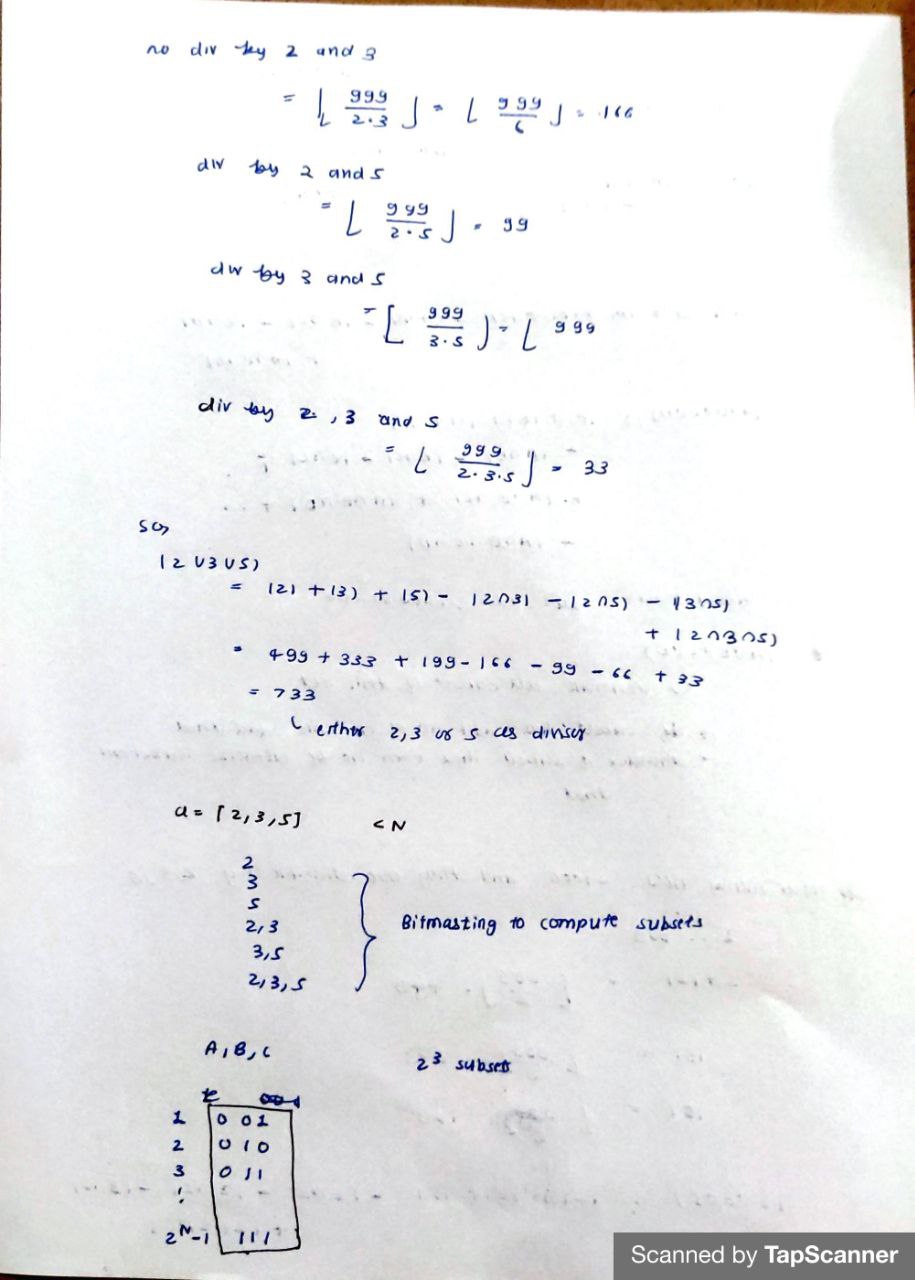 no div by 2 and 3
= ⌊ 999 / 2·3 ⌋ = ⌊ 999 / 6 ⌋ = 166
div by 2 and 5
= ⌊ 999 / 2·5 ⌋ = 99
div by 3 and 5
= ⌊ 999 / 3·5 ⌋ = ⌊ 999
div by 2, 3 and 5
= ⌊ 999 / 2·3·5 ⌋ = 33
so,
|2 ∪ 3 ∪ 5|
= |2| + |3| + |5| - |2∩3| - |2∩5| - |3∩5|
+ |2∩3∩5|
= 499 + 333 + 199 - 166 - 99 - 66 + 33
= 733
either 2,3 or 5 as divisor
a = [2,3,5] < N
2
3
5
2,3
3,5
2,3,5
Bitmasting to compute subsets
A, B, C
2³ subsets
1 0 0 1
2 0 1 0
3 0 1 1
2ᴺ-1 1 1 1
Scanned by TapScanner